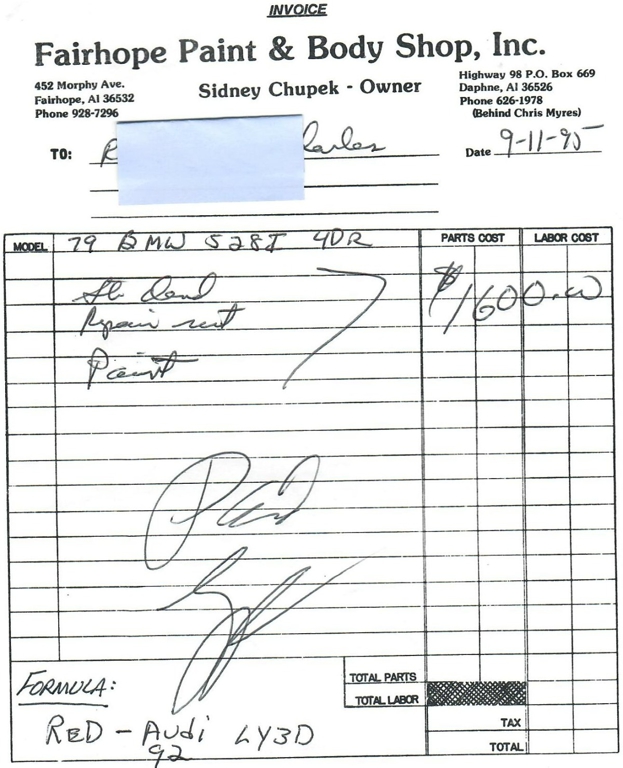 INVOICE
Fairhope Paint & Body Shop, Inc.
452 Morphy Ave.
Fairhope, Al 36532
Phone 928-7296
Sidney Chupek - Owner
Highway 98 P.O. Box 669
Daphne, Al 36526
Phone 626-1978
(Behind Chris Myres)
TO:
Date 9-11-95
MODEL 79 BMW 528I 4DR PARTS COST LABOR COST
$1600.00
Repair rust
Paint
Paid
TOTAL PARTS
TOTAL LABOR
TAX
TOTAL
FORMULA:
RED - Audi LY3D
92